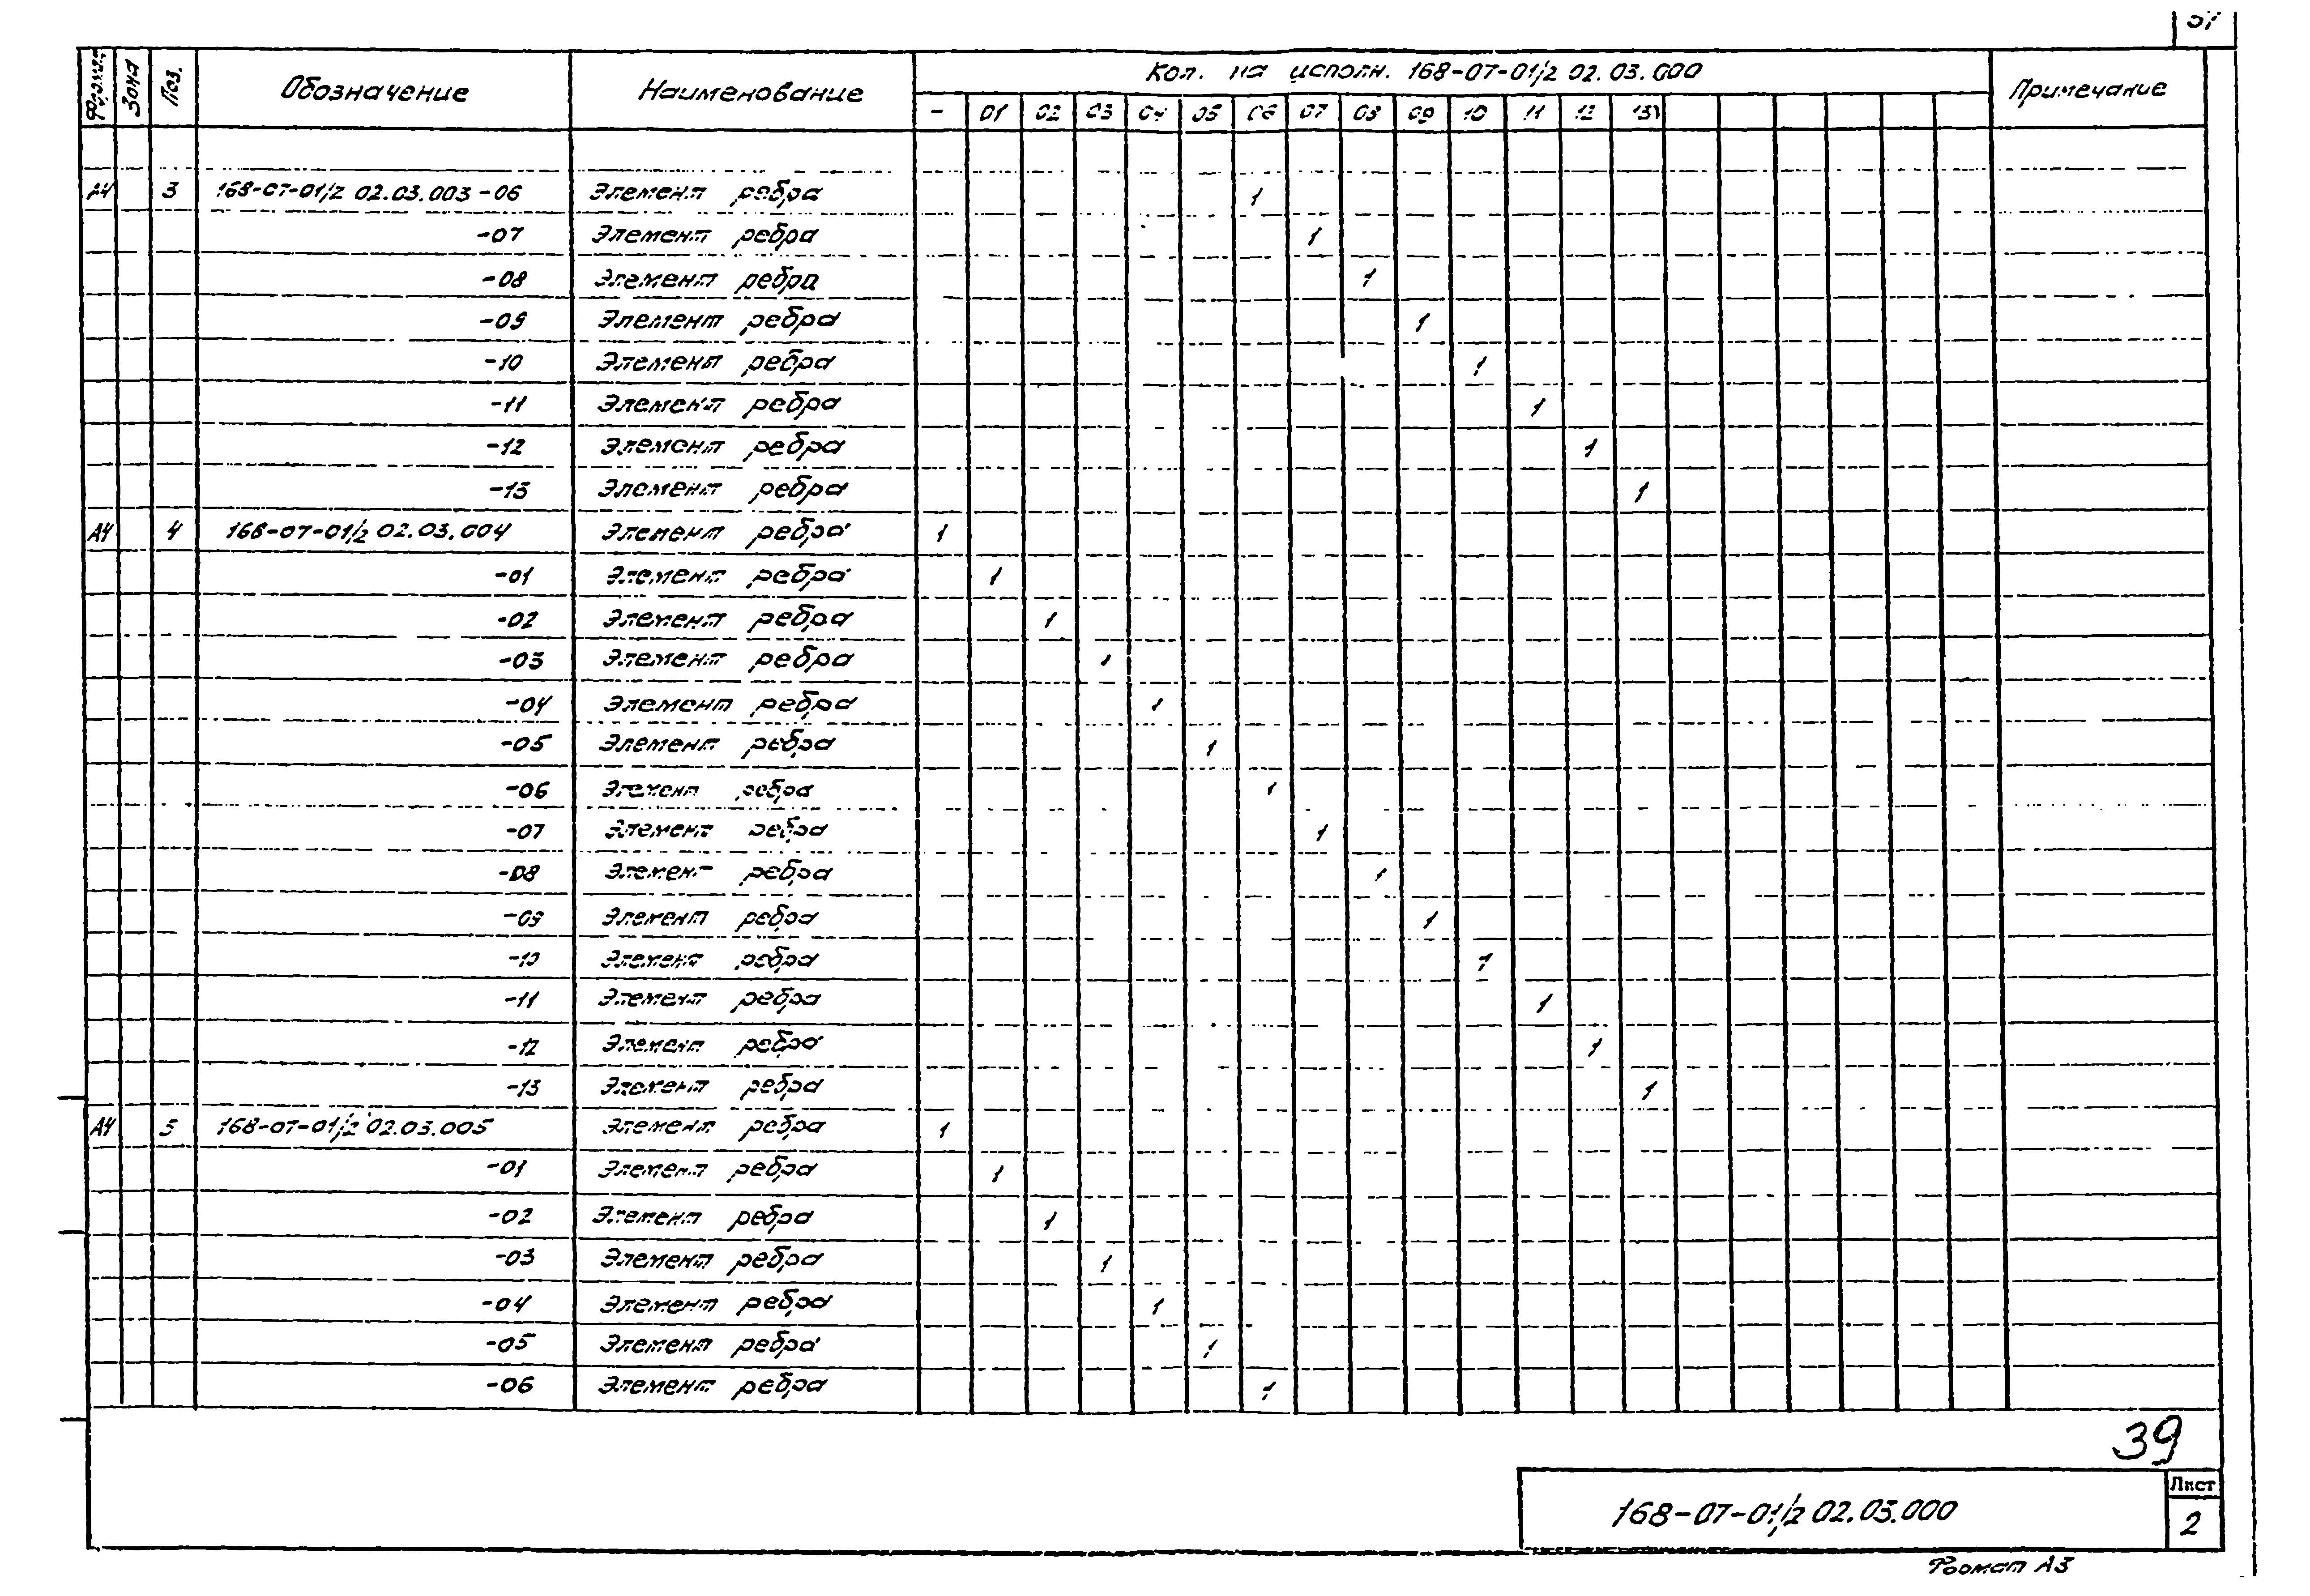 37
Формат Зона Поз. Обозначение Наименование Кол. на исполн. 168-07-01/2 02.03.000 Примечание
- 01 02 03 04 05 06 07 08 09 10 11 12 13
А4 3 168-07-01/2 02.03.003-06 Элемент ребра 1
-07 Элемент ребра 1
-08 Элемент ребра 1
-09 Элемент ребра 1
-10 Элемент ребра 1
-11 Элемент ребра 1
-12 Элемент ребра 1
-13 Элемент ребра 1
А4 4 168-07-01/2 02.03.004 Элемент ребра 1
-01 Элемент ребра 1
-02 Элемент ребра 1
-03 Элемент ребра 1
-04 Элемент ребра 1
-05 Элемент ребра 1
-06 Элемент ребра 1
-07 Элемент ребра 1
-08 Элемент ребра 1
-09 Элемент ребра 1
-10 Элемент ребра 1
-11 Элемент ребра 1
-12 Элемент ребра 1
-13 Элемент ребра 1
А4 5 168-07-01/2 02.03.005 Элемент ребра 1
-01 Элемент ребра 1
-02 Элемент ребра 1
-03 Элемент ребра 1
-04 Элемент ребра 1
-05 Элемент ребра 1
-06 Элемент ребра 1
39
168-07-01/2 02.03.000
Лист
2
Формат А3